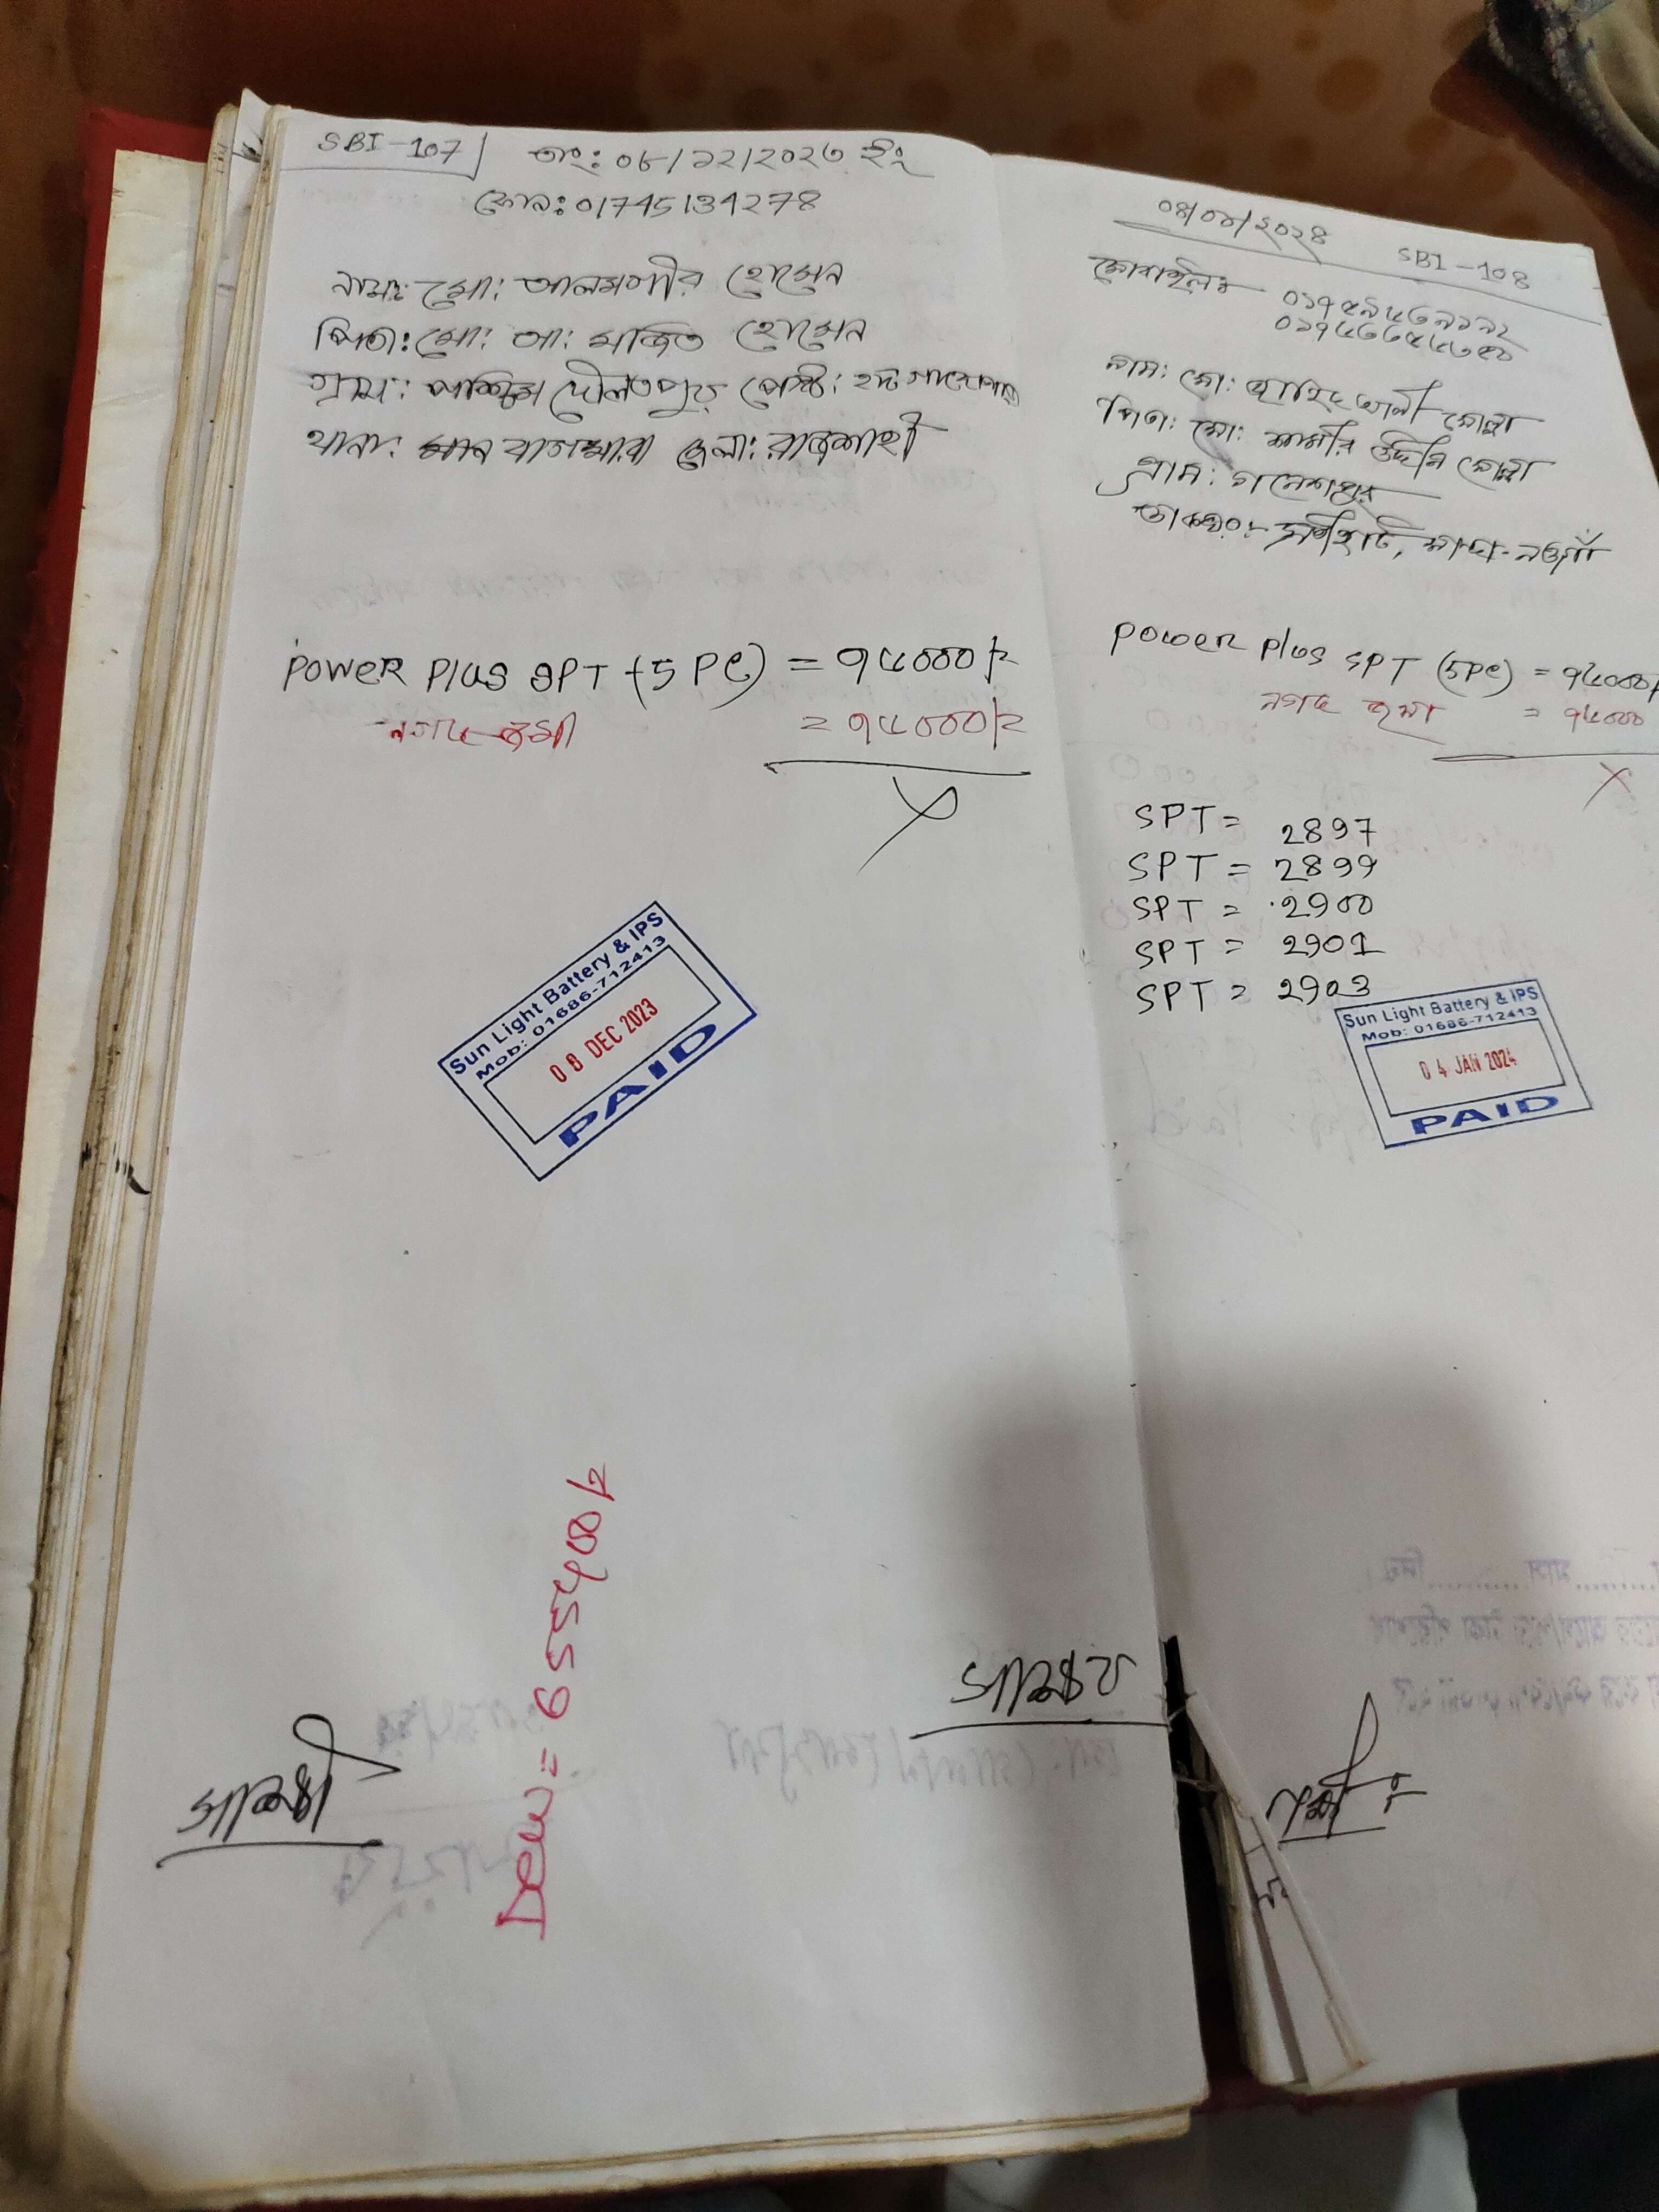 SBI-107
তাং: ০৮/১২/২০২৩ ইং
ফোন: 01745134278
নাম: মো: আলমগীর হোসেন
পিতা: মো: আ: মজিত হোসেন
গ্রাম: পশ্চিম দৌলতপুর পোষ্ট:
থানা: বাগমারা জেলা: রাজশাহী
POWER Plus SPT (5 Pc) = ৭৫০০০/=
নগদ জমা = ৭৫০০০/=
Sun Light Battery & IPS
Mob: 01686-712413
08 DEC 2023
PAID
Deu = 655400/=
সাক্ষী
স্বাক্ষর
০৪/০১/২০২৪ SBI-108
মোবাইল:
নাম: মো: জাহিদ আলী মোল্লা
পিতা: মো: উদ্দিন মোল্লা
গ্রাম: গনেশপুর
ডাকঘর:- মান্দা-নওগাঁ
Power Plus SPT (5Pc) = ৭৫০০০/
নগদ জমা = ৭৫০০০
SPT = 2897
SPT = 2899
SPT = 2900
SPT = 2901
SPT = 2903
Sun Light Battery & IPS
Mob: 01686-712413
04 JAN 2024
PAID